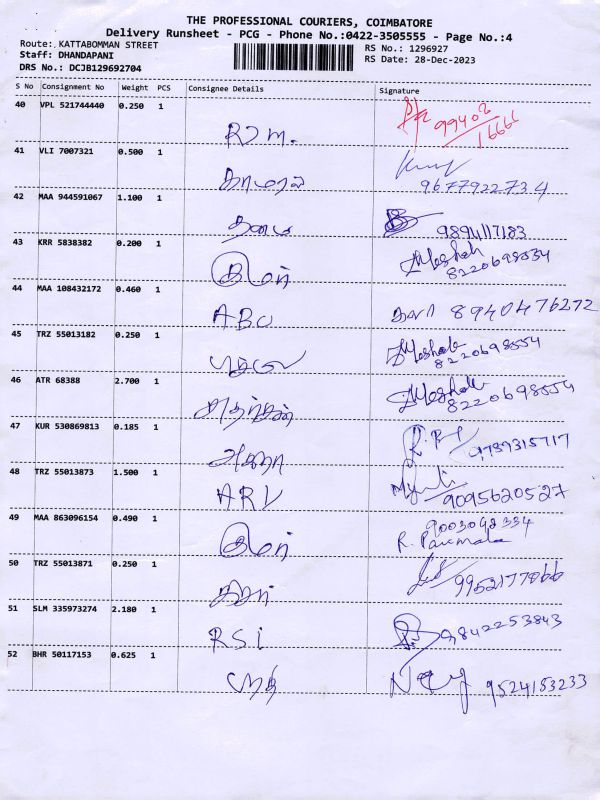 THE PROFESSIONAL COURIERS, COIMBATORE
Delivery Runsheet - PCG - Phone No.:0422-3505555 - Page No.:4
Route: KATTABOMMAN STREET
RS No.: 1296927
Staff: DHANDAPANI
RS Date: 28-Dec-2023
DRS No.: DCJB129692704
S No Consignment No Weight PCS Consignee Details Signature
40 VPL 521744440 0.250 1
99402
16666
41 VLI 7007321 0.500 1
9677922734
42 MAA 944591067 1.100 1
9894117183
43 KRR 5838382 0.200 1
8220698554
44 MAA 108432172 0.460 1
ABC 8940476272
45 TRZ 55013182 0.250 1
8220698554
46 ATR 68388 2.700 1
8220698554
47 KUR 530869813 0.185 1
48 TRZ 55013873 1.500 1
ARV 9095620527
49 MAA 863096154 0.490 1
9003092334
R. Parimala
50 TRZ 55013871 0.250 1
9952177066
51 SLM 335973274 2.180 1
RSi 9842253843
52 BHR 50117153 0.625 1
9524153233